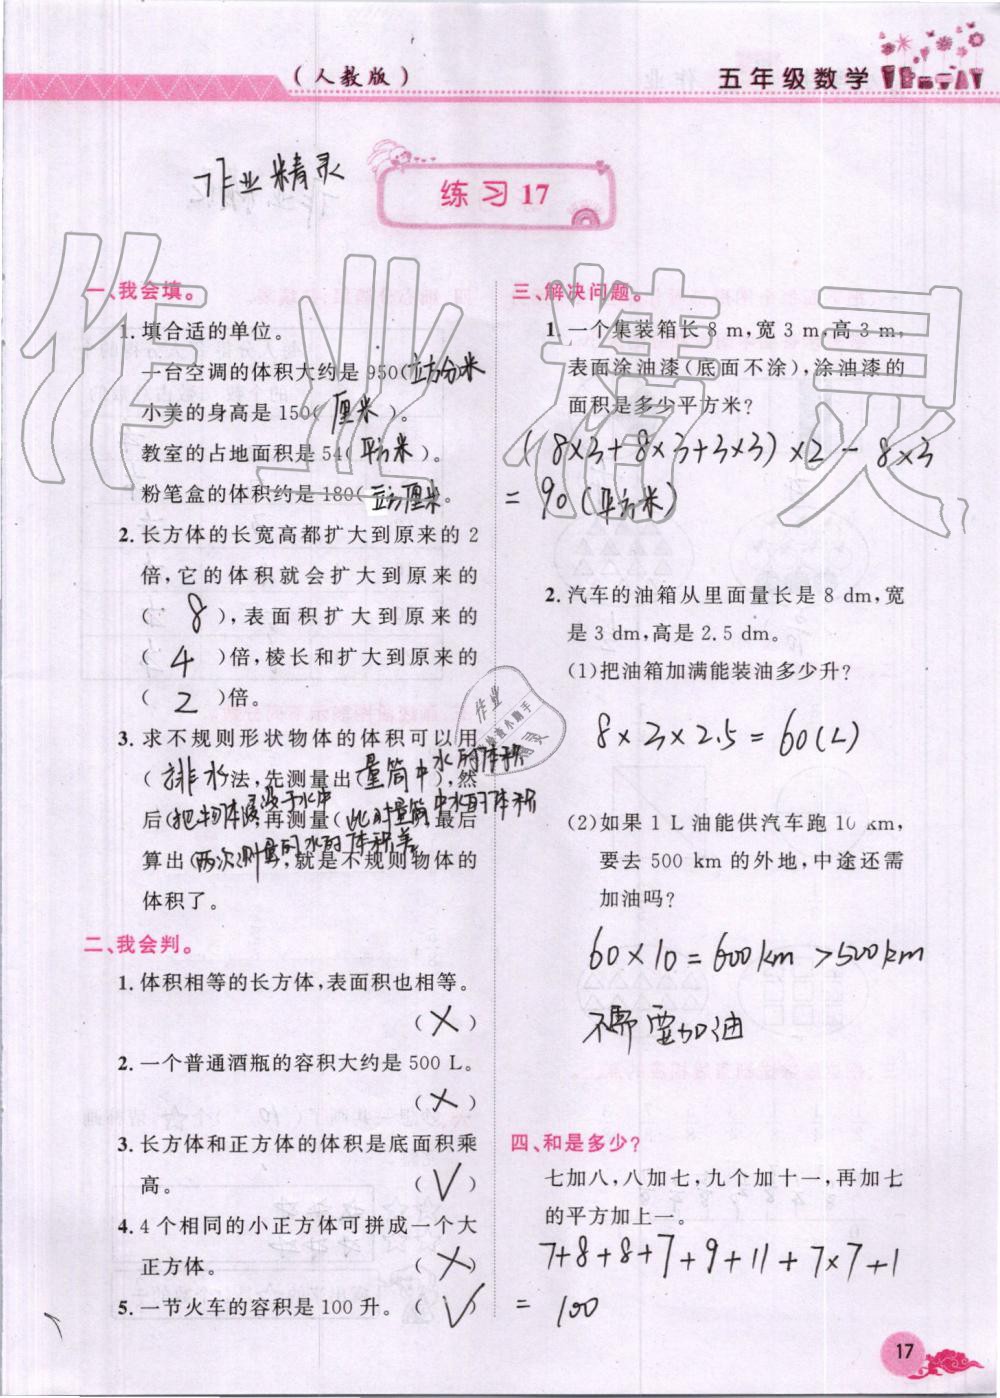 （人教版）
五年级数学
作业精灵
练习 17
作业精灵
一、我会填。
1. 填合适的单位。
一台空调的体积大约是 950(立方分米
小美的身高是 150( 厘米 )。
教室的占地面积是 54( 平方米 )。
粉笔盒的体积约是 180( 立方厘米 。
2. 长方体的长宽高都扩大到原来的 2
倍，它的体积就会扩大到原来的
( 8 )，表面积扩大到原来的
( 4 )倍，棱长和扩大到原来的
( 2 )倍。
3. 求不规则形状物体的体积可以用
(排水法，先测量出(量筒中水的体积)，然
后(把物体浸没于水中，再测量(此时量筒中水的体积，最后
算出(两次测量的水的体积差，就是不规则物体的
体积了。
二、我会判。
1. 体积相等的长方体，表面积也相等。
( × )
2. 一个普通酒瓶的容积大约是 500 L。
( × )
3. 长方体和正方体的体积是底面积乘
高。 ( √ )
4. 4 个相同的小正方体可拼成一个大
正方体。 ( × )
5. 一节火车的容积是 100 升。 ( √ )
三、解决问题。
1. 一个集装箱长 8 m，宽 3 m，高 3 m，
表面涂油漆(底面不涂)，涂油漆的
面积是多少平方米?
(8×3+8×3+3×3)×2-8×3
= 90(平方米)
2. 汽车的油箱从里面量长是 8 dm，宽
是 3 dm，高是 2.5 dm。
(1)把油箱加满能装油多少升?
8×3×2.5=60(L)
(2)如果 1 L 油能供汽车跑 10 km，
要去 500 km 的外地，中途还需
加油吗?
60×10=600km>500km
不需要加油
四、和是多少?
七加八，八加七，九个加十一，再加七
的平方加上一。
7+8+8+7+9+11+7×7+1
= 100
17